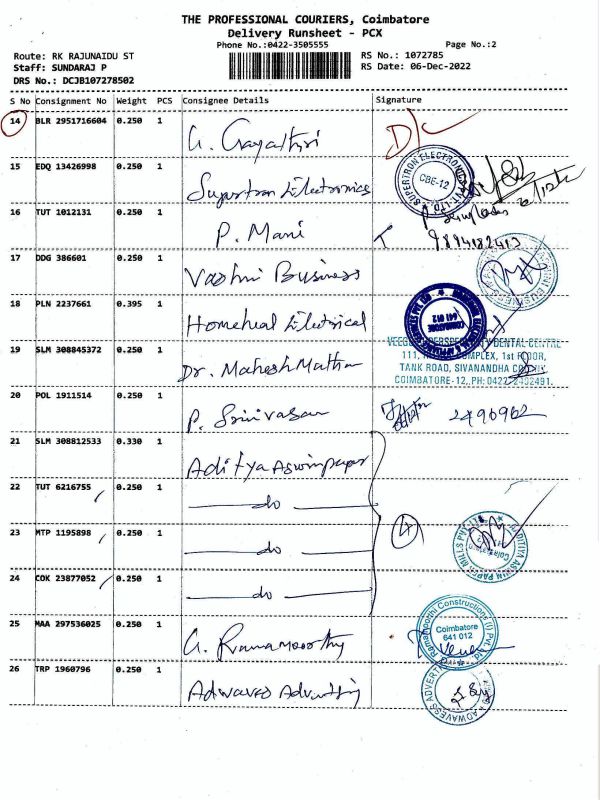 THE PROFESSIONAL COURIERS, Coimbatore
Delivery Runsheet - PCX
Phone No.:0422-3505555 Page No.:2
Route: RK RAJUNAIDU ST RS No.: 1072785
Staff: SUNDARAJ P RS Date: 06-Dec-2022
DRS No.: DCJB107278502
S No Consignment No Weight PCS Consignee Details Signature
14 BLR 2951716604 0.250 1 G. Gayathri D/C
15 EDQ 13426998 0.250 1 Supertron Electronics SUPERTRON ELECTRONICS PVT. LTD. CBE-12
16 TUT 1012131 0.250 1 P. Mani
17 DDG 386601 0.250 1 Vashni Business
18 PLN 2237661 0.395 1 Homeheal Electrical COIMBATORE 641 012
19 SLM 308845372 0.250 1 Dr. Mahesh DENTAL CENTRE
111, COMPLEX, 1st FLOOR,
TANK ROAD, SIVANANDHA COLONY
COIMBATORE-12,.PH:0422-2492491.
20 POL 1911514 0.250 1 P. Srinivasan 2490962
21 SLM 308812533 0.330 1 Aditya Aswinpaper
22 TUT 6216755 0.250 1 do
23 MTP 1195898 0.250 1 do 4
24 COK 23877052 0.250 1 do
25 MAA 297536025 0.250 1 G. Ramamoorthy Ramamoorthi Constructions (I) Pvt. Ltd Coimbatore 641 012
26 TRP 1960796 0.250 1 Adwaves Advertising ADWAVESS